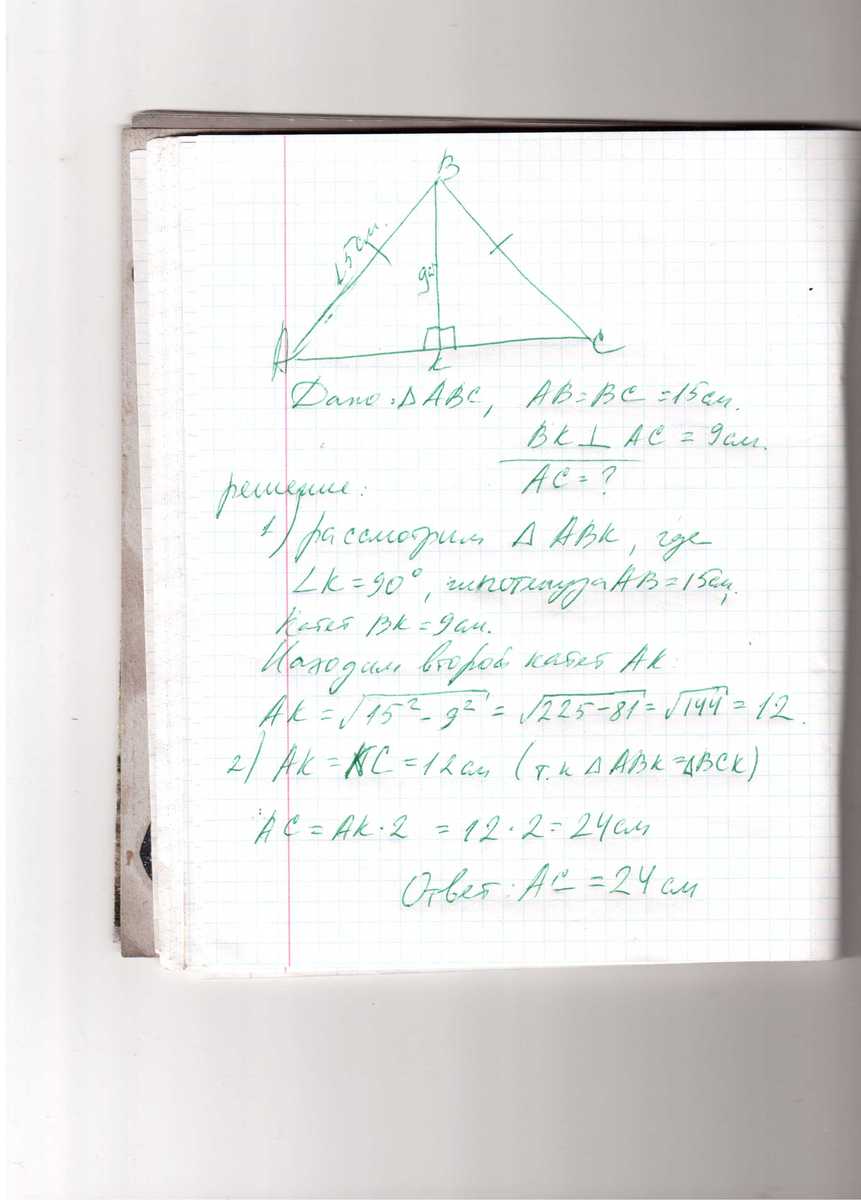 B
15см.
9см
A
K
C
Дано: △ABC, AB=BC=15см.
BK⊥AC=9см.
AC=?
решение:
1) рассмотрим △ABK, где
∠K=90°, гипотенуза AB=15см,
Катет BK=9см.
Находим второй катет AK:
AK=√15²-9²=√225-81=√144=12.
2) AK=KC=12см (т.к △ABK=△BCK)
AC=AK·2 =12·2=24см
Ответ: AC=24см